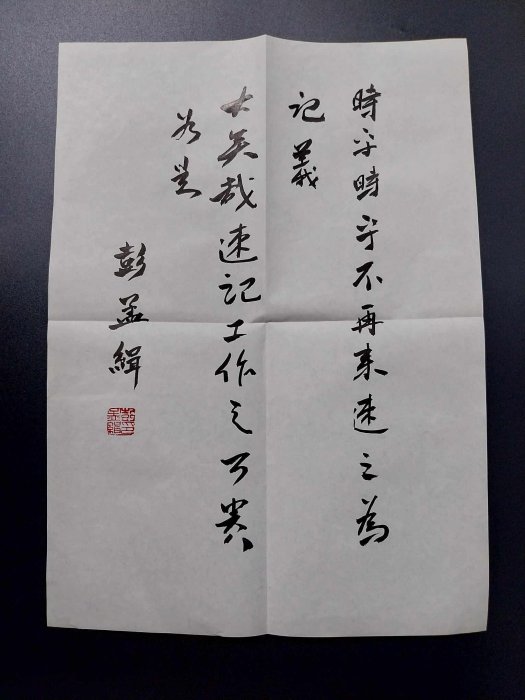 時乎時乎不再來速之為
記義
大矣哉速記工作之可貴
為是
彭孟緝